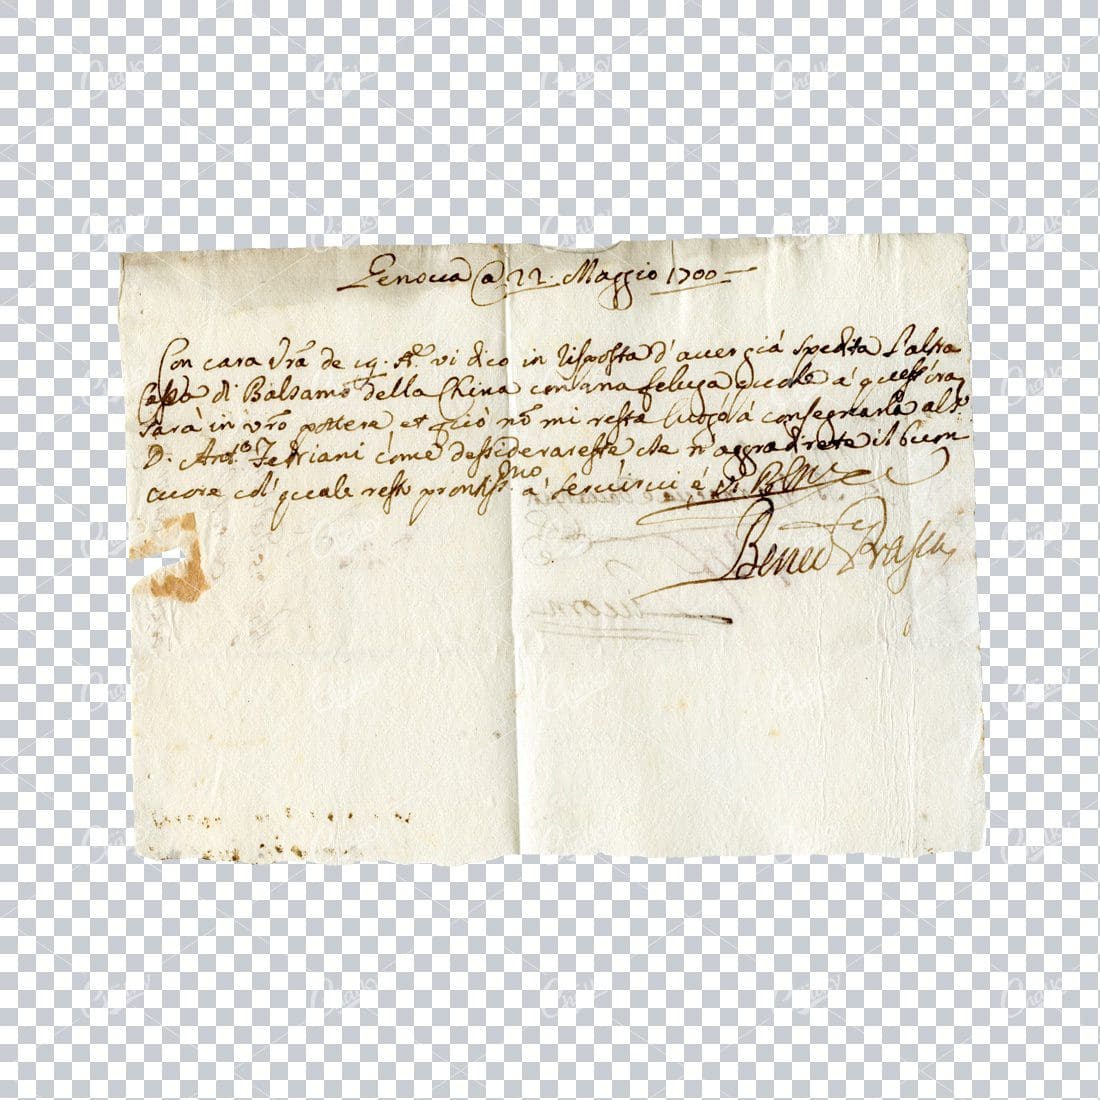 Genova @ 22. Maggio 1700
Con cara Vra de 19. st.e vi dico in risposta d'aver già spedita l'altra
Cassa di Balsamo della China con una feluga quale a quest'ora
sarà in vro pottere et però nõ mi resta luogo a consegnarla al S.r
D. Ant.o come dessiderareste che n'aggradirete il buon
cuore col' quale resto prontiss.mo à servirvi é
Bened